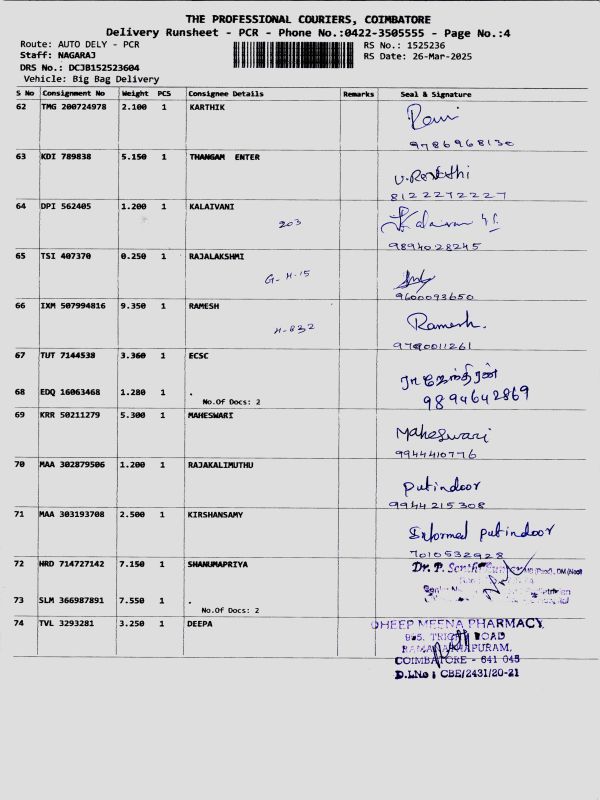 THE PROFESSIONAL COURIERS, COIMBATORE
Delivery Runsheet - PCR - Phone No.:0422-3505555 - Page No.:4
Route: AUTO DELY - PCR RS No.: 1525236
Staff: NAGARAJ RS Date: 26-Mar-2025
DRS No.: DCJB152523604
Vehicle: Big Bag Delivery
S No Consignment No Weight PCS Consignee Details Remarks Seal & Signature
62 TMG 200724978 2.100 1 KARTHIK
9786968130
63 KDI 789838 5.150 1 THANGAM ENTER
8122272227
64 DPI 562405 1.200 1 KALAIVANI
203
9894028245
65 TSI 407370 0.250 1 RAJALAKSHMI
G-H-15
9600093650
66 IXM 507994816 9.350 1 RAMESH
H-832 Ramesh.
9790011261
67 TUT 7144538 3.360 1 ECSC
ராஜேந்திரன்
68 EDQ 16063468 1.280 1 .
No.Of Docs: 2 9894642869
69 KRR 50211279 5.300 1 MAHESWARI
Maheswari
9944410776
70 MAA 302879506 1.200 1 RAJAKALIMUTHU
Putindoor
9944215308
71 MAA 303193708 2.500 1 KIRSHANSAMY
Informed putindoor
7010532928
72 HRD 714727142 7.150 1 SHANUMAPRIYA Dr. P.
73 SLM 366987891 7.550 1 .
No.Of Docs: 2
74 TVL 3293281 3.250 1 DEEPA DHEEP MEENA PHARMACY,
ROAD
COIMBATORE - 641 045
D.LNo : CBE/2431/20-21